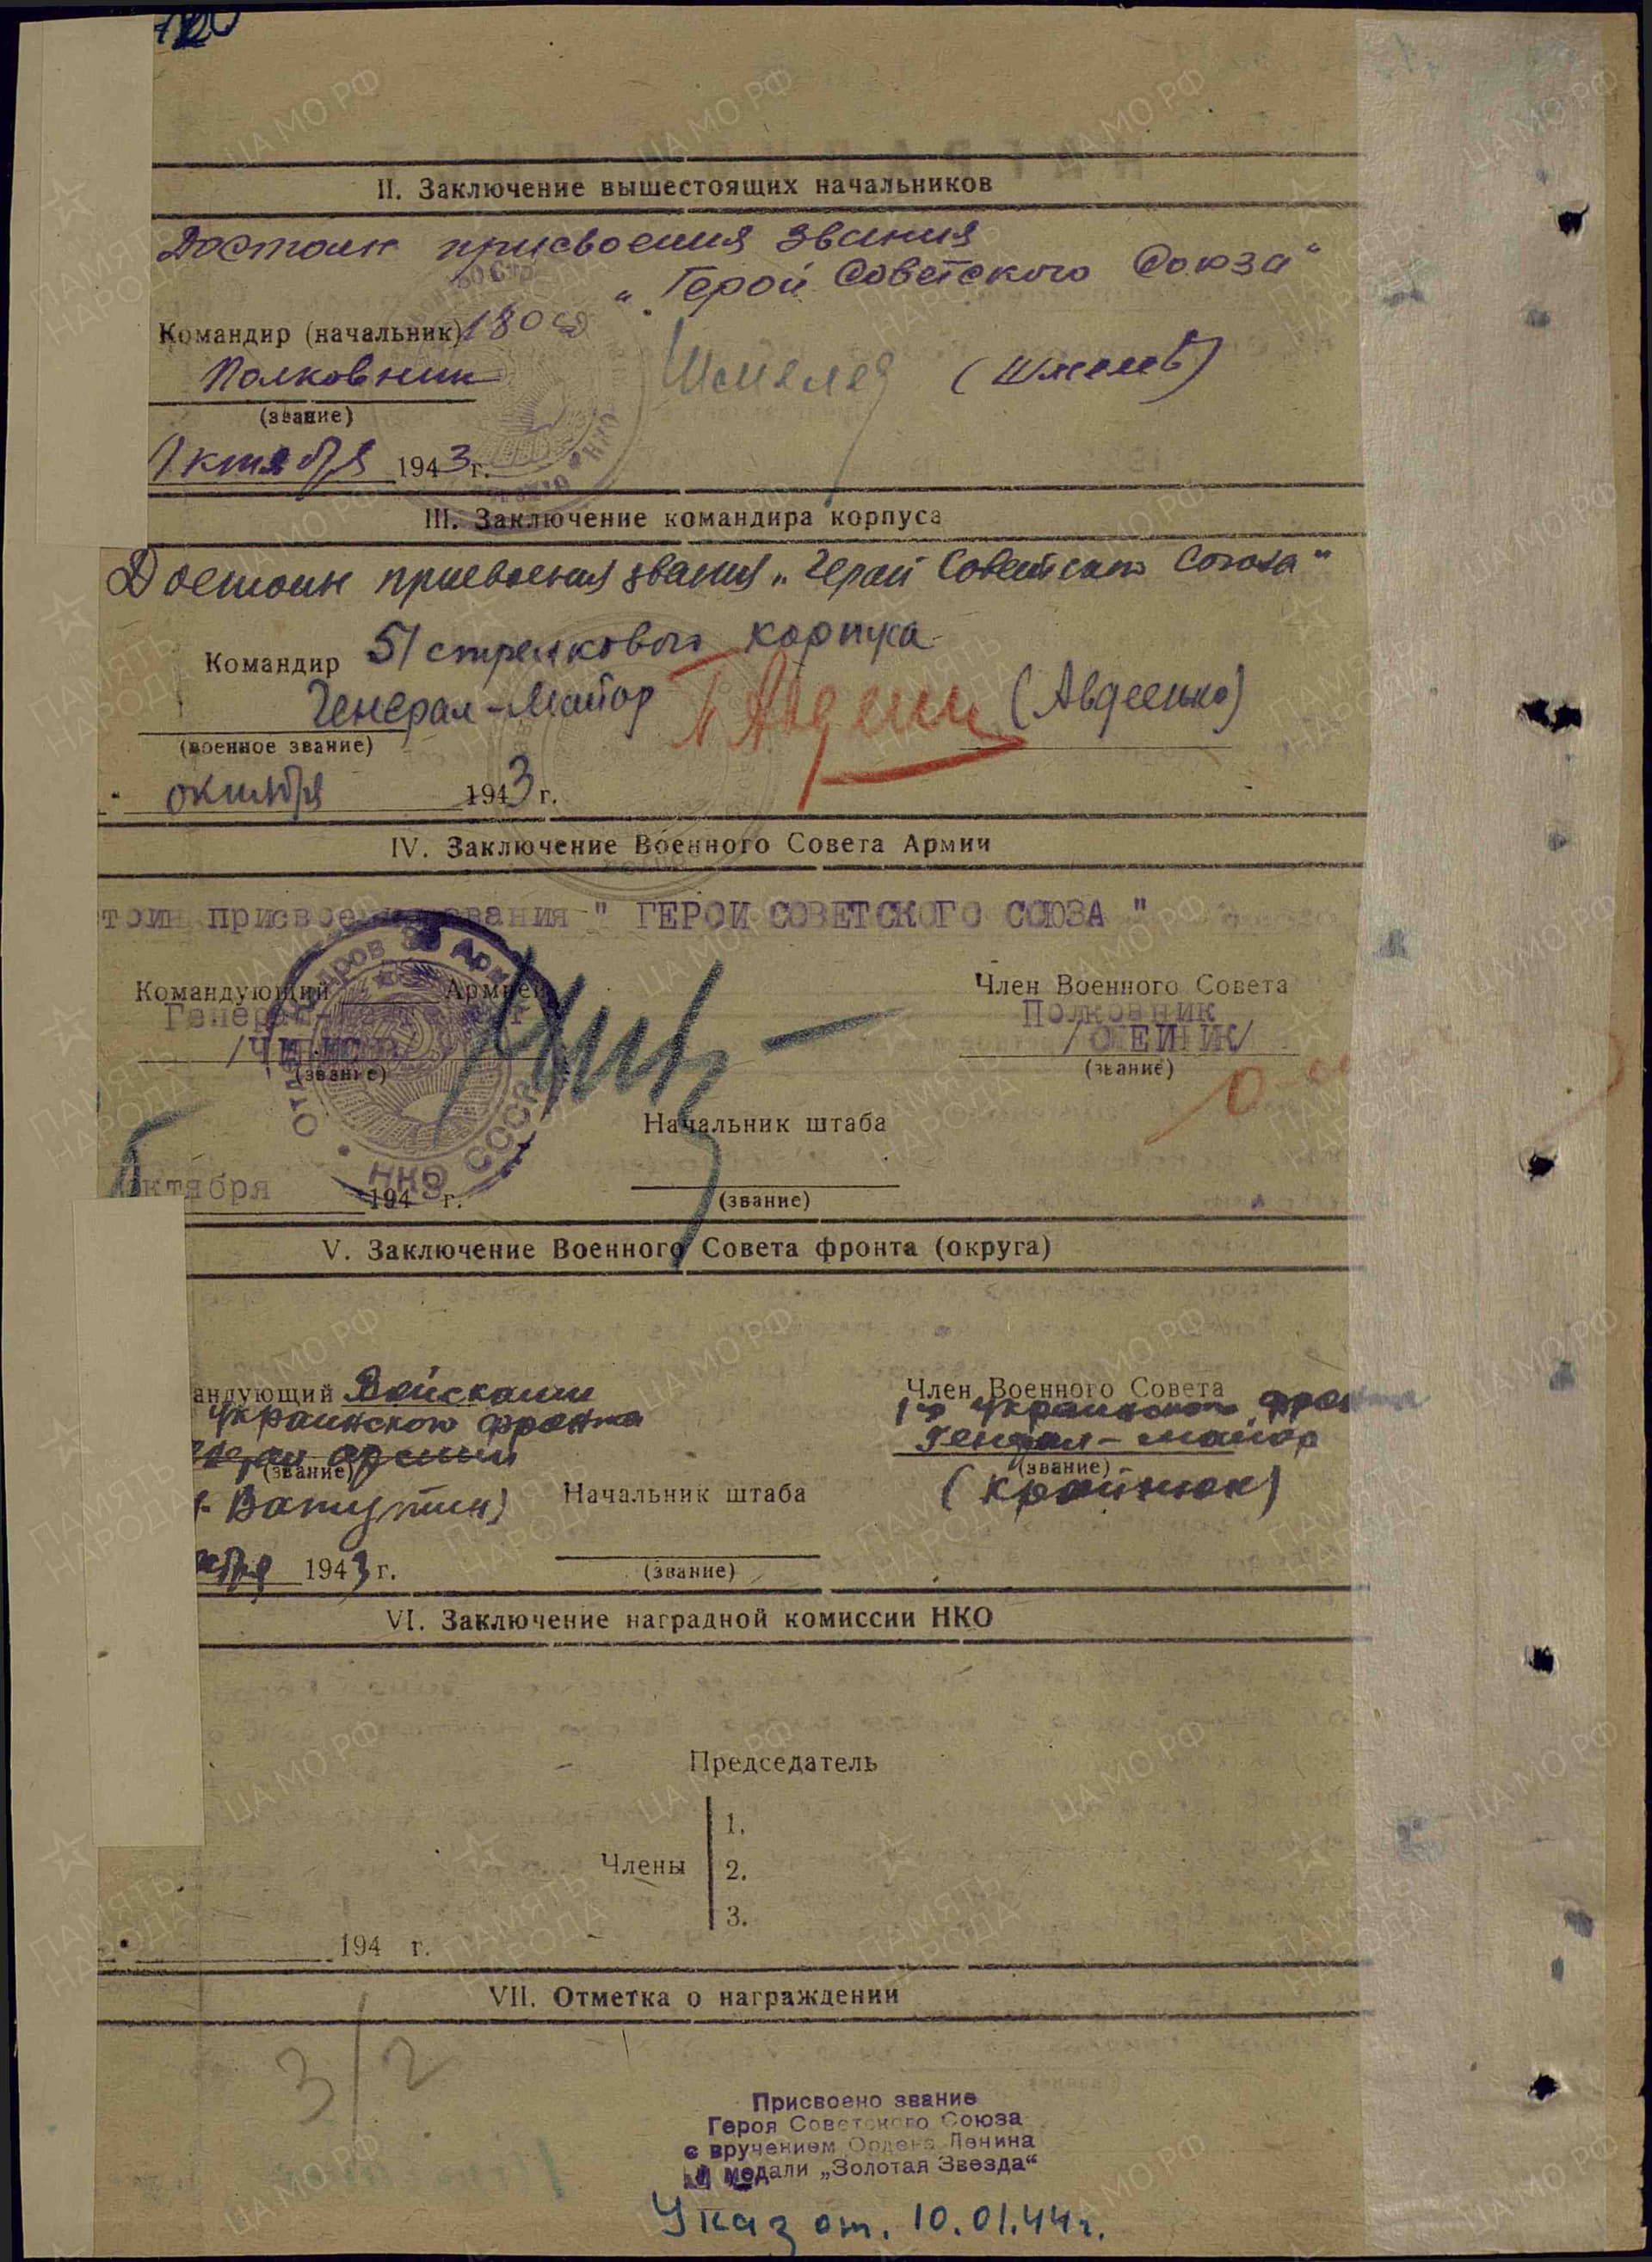 120
II. Заключение вышестоящих начальников
Достоин присвоения звания
„Герой Советского Союза“
Командир (начальник) 180 сд
Полковник
Шмелев (Шмелев)
(звание)
октября 1943 г.
III. Заключение командира корпуса
Достоин присвоения звания „Герой Советского Союза“
Командир 51 стрелкового корпуса
Генерал-Майор (Авдеенко)
(военное звание)
октября 1943 г.
IV. Заключение Военного Совета Армии
тоин присвоения звания " ГЕРОЙ СОВЕТСКОГО СОЮЗА "
Командующий Армией
Член Военного Совета
Полковник
/ОЛЕЙНИК/
(звание)
(звание)
Начальник штаба
октября 194 г.
(звание)
V. Заключение Военного Совета фронта (округа)
андующий Войсками
Украинского фронта
армии
(звание)
Ватутин)
Член Военного Совета
1го Украинского фронта
Генерал-майор
(звание)
(Крайнюк)
Начальник штаба
1943 г.
(звание)
VI. Заключение наградной комиссии НКО
Председатель
Члены
1.
2.
3.
194 г.
VII. Отметка о награждении
3/2
Присвоено звание
Героя Советского Союза
с вручением Ордена Ленина
и медали „Золотая Звезда“
Указ от. 10.01.44г.